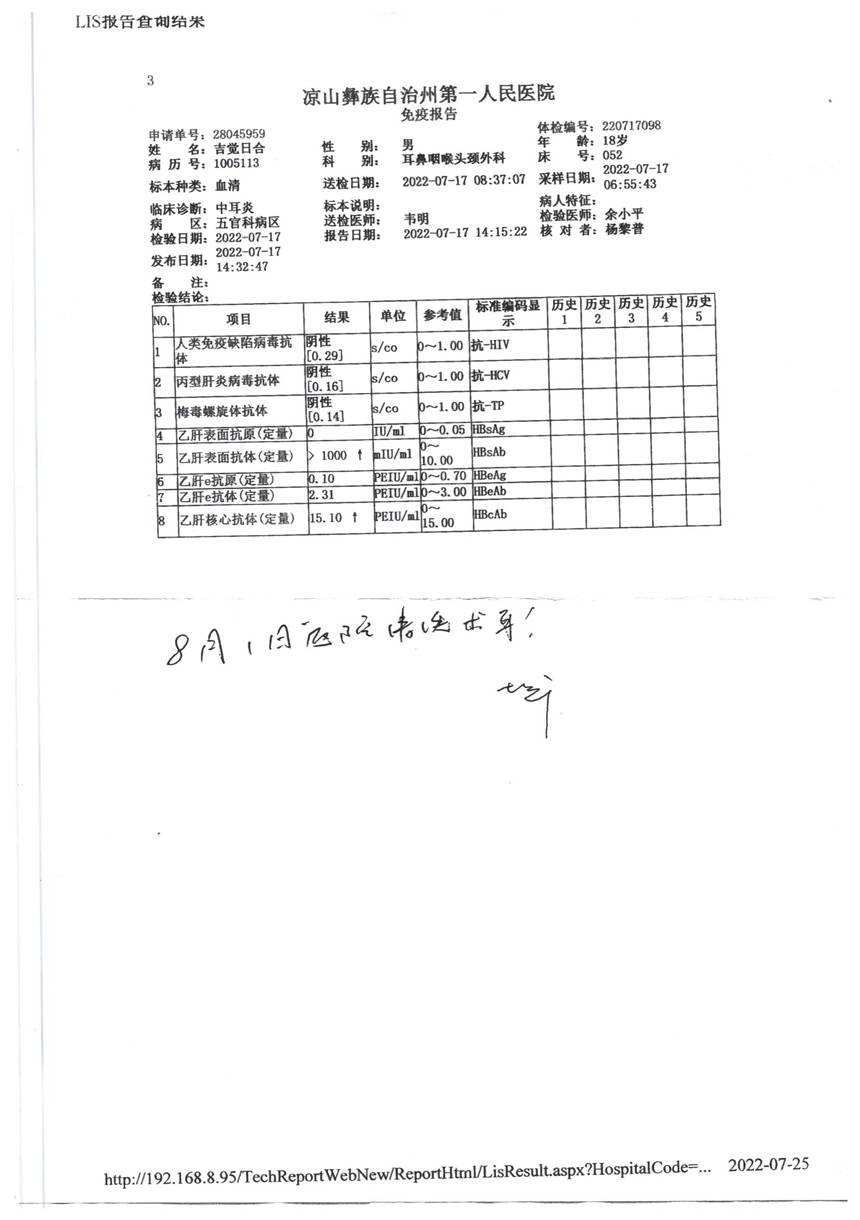 LIS报告查询结果
3
凉山彝族自治州第一人民医院
免疫报告
申请单号：28045959 体检编号：220717098
姓 名：吉觉日合 性 别：男 年 龄：18岁
病 历 号：1005113 科 别：耳鼻咽喉头颈外科 床 号：052
标本种类：血清 送检日期：2022-07-17 08:37:07 采样日期：2022-07-17 06:55:43
临床诊断：中耳炎 标本说明： 病人特征：
病 区：五官科病区 送检医师：韦明 检验医师：余小平
检验日期：2022-07-17 报告日期：2022-07-17 14:15:22 核 对 者：杨黎普
发布日期：2022-07-17 14:32:47
备 注：
检验结论：
NO. 项目 结果 单位 参考值 标准编码显示 历史1 历史2 历史3 历史4 历史5
1 人类免疫缺陷病毒抗体 阴性[0.29] s/co 0～1.00 抗-HIV
2 丙型肝炎病毒抗体 阴性[0.16] s/co 0～1.00 抗-HCV
3 梅毒螺旋体抗体 阴性[0.14] s/co 0～1.00 抗-TP
4 乙肝表面抗原(定量) 0 IU/ml 0～0.05 HBsAg
5 乙肝表面抗体(定量) > 1000 ↑ mIU/ml 0～10.00 HBsAb
6 乙肝e抗原(定量) 0.10 PEIU/ml 0～0.70 HBeAg
7 乙肝e抗体(定量) 2.31 PEIU/ml 0～3.00 HBeAb
8 乙肝核心抗体(定量) 15.10 ↑ PEIU/ml 0～15.00 HBcAb
8月1日医院清洗术耳！
http://192.168.8.95/TechReportWebNew/ReportHtml/LisResult.aspx?HospitalCode=... 2022-07-25